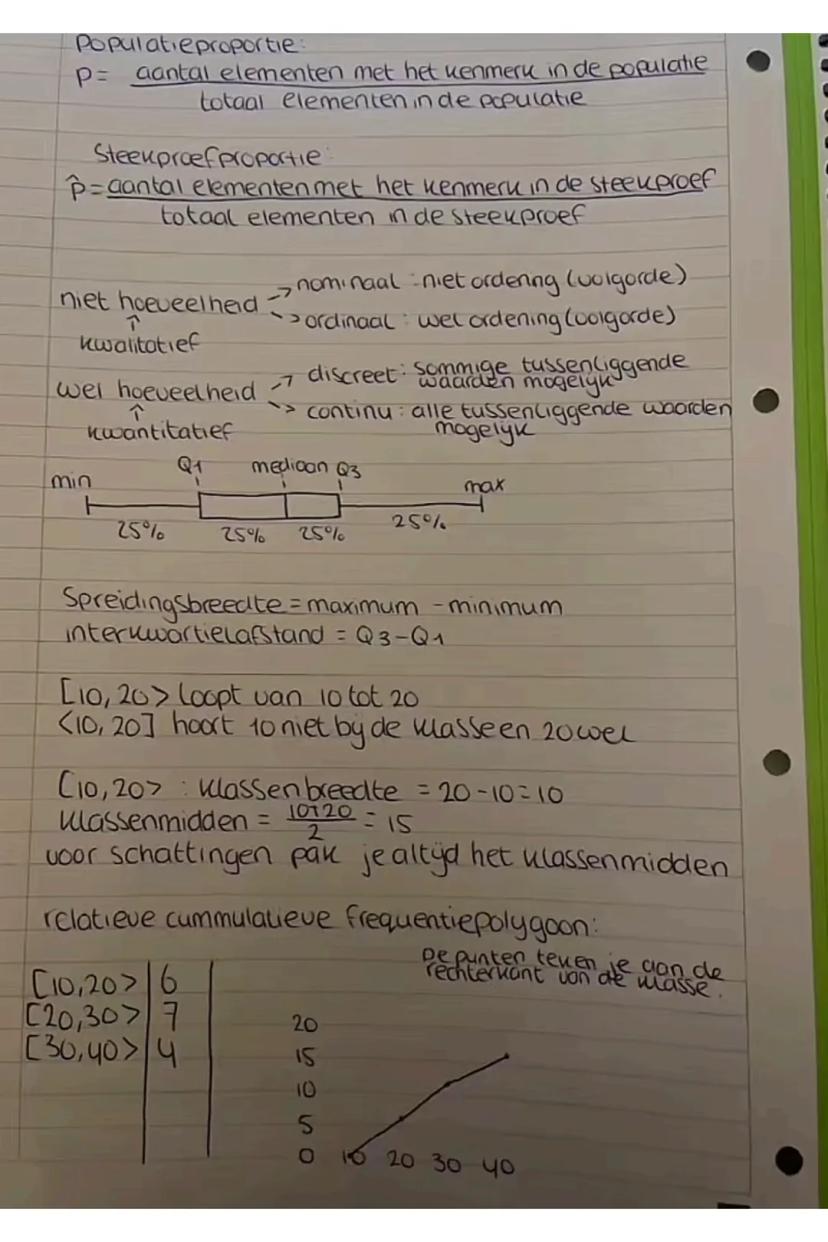 Populatieproportie:
p= aantal elementen met het kenmerk in de populatie
totaal elementen in de populatie
Steekproefproportie:
p̂= aantal elementen met het kenmerk in de steekproef
totaal elementen in de steekproef
niet hoeveelheid → nominaal : niet ordening (volgorde)
→ ordinaal : wel ordening (volgorde)
↑
kwalitatief
wel hoeveelheid → discreet : sommige tussenliggende
waarden mogelijk
→ continu : alle tussenliggende waarden
mogelijk
↑
kwantitatief
min Q1 mediaan Q3 max
25% 25% 25% 25%
Spreidingsbreedte = maximum - minimum
interkwartielafstand = Q3-Q1
[10, 20> loopt van 10 tot 20
<10, 20] hoort 10 niet bij de klasse en 20 wel
[10, 20> : klassenbreedte = 20-10=10
klassenmidden = 10+20/2 = 15
voor schattingen pak je altijd het klassenmidden
relatieve cummulatieve frequentiepolygoon:
De punten teken je aan de
rechterkant van de klasse.
[10,20> 6
[20,30> 7
[30,40> 4
20
15
10
5
0 10 20 30 40